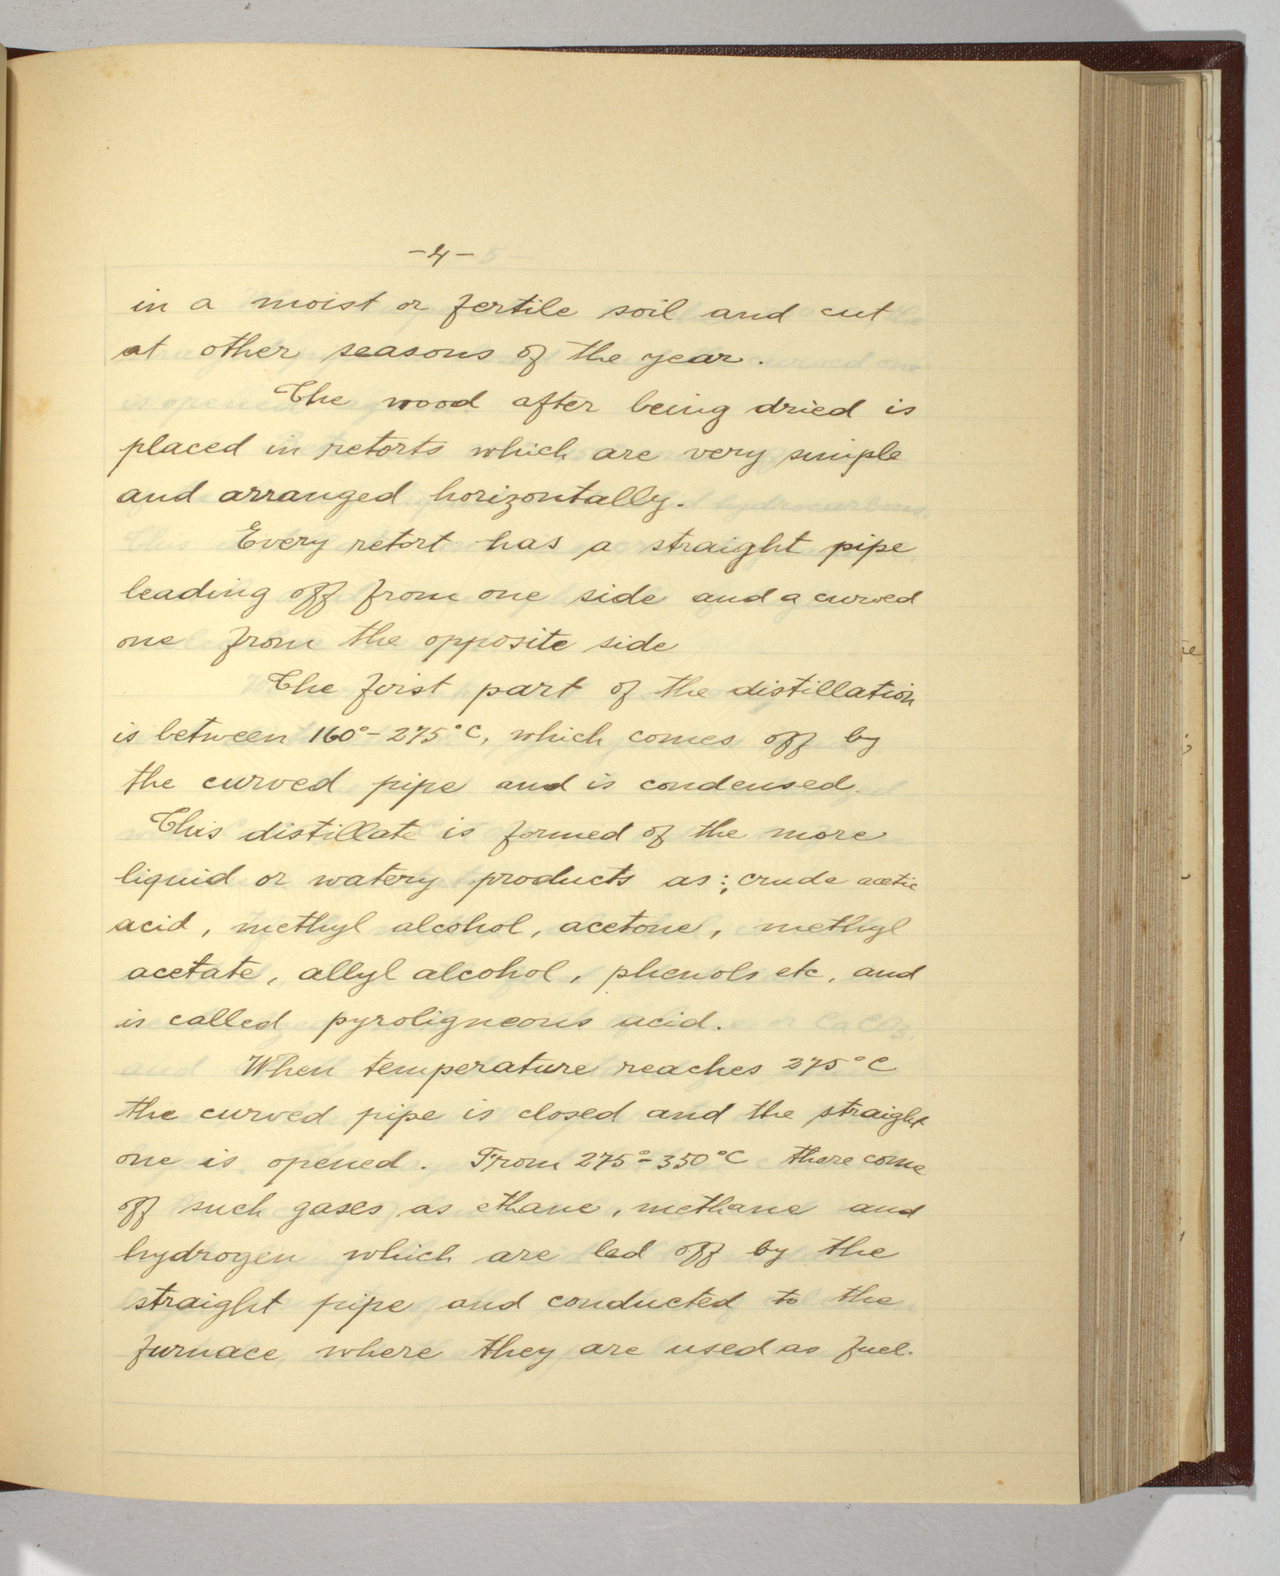 -4-
in a moist or fertile soil and cut
at other seasons of the year.
The wood after being dried is
placed in retorts which are very simple
and arranged horizontally.
Every retort has a straight pipe
leading off from one side and a curved
one from the opposite side
The first part of the distillation
is between 160°-275°C, which comes off by
the curved pipe and is condensed.
This distillate is formed of the more
liquid or watery products as: crude acetic
acid, methyl alcohol, acetone, methyl
acetate, allyl alcohol, phenols etc, and
is called pyroligneous acid.
When temperature reaches 275°C
the curved pipe is closed and the straight
one is opened. From 275°-350°C there come
off such gases as ethane, methane and
hydrogen which are led off by the
straight pipe and conducted to the
furnace where they are used as fuel.